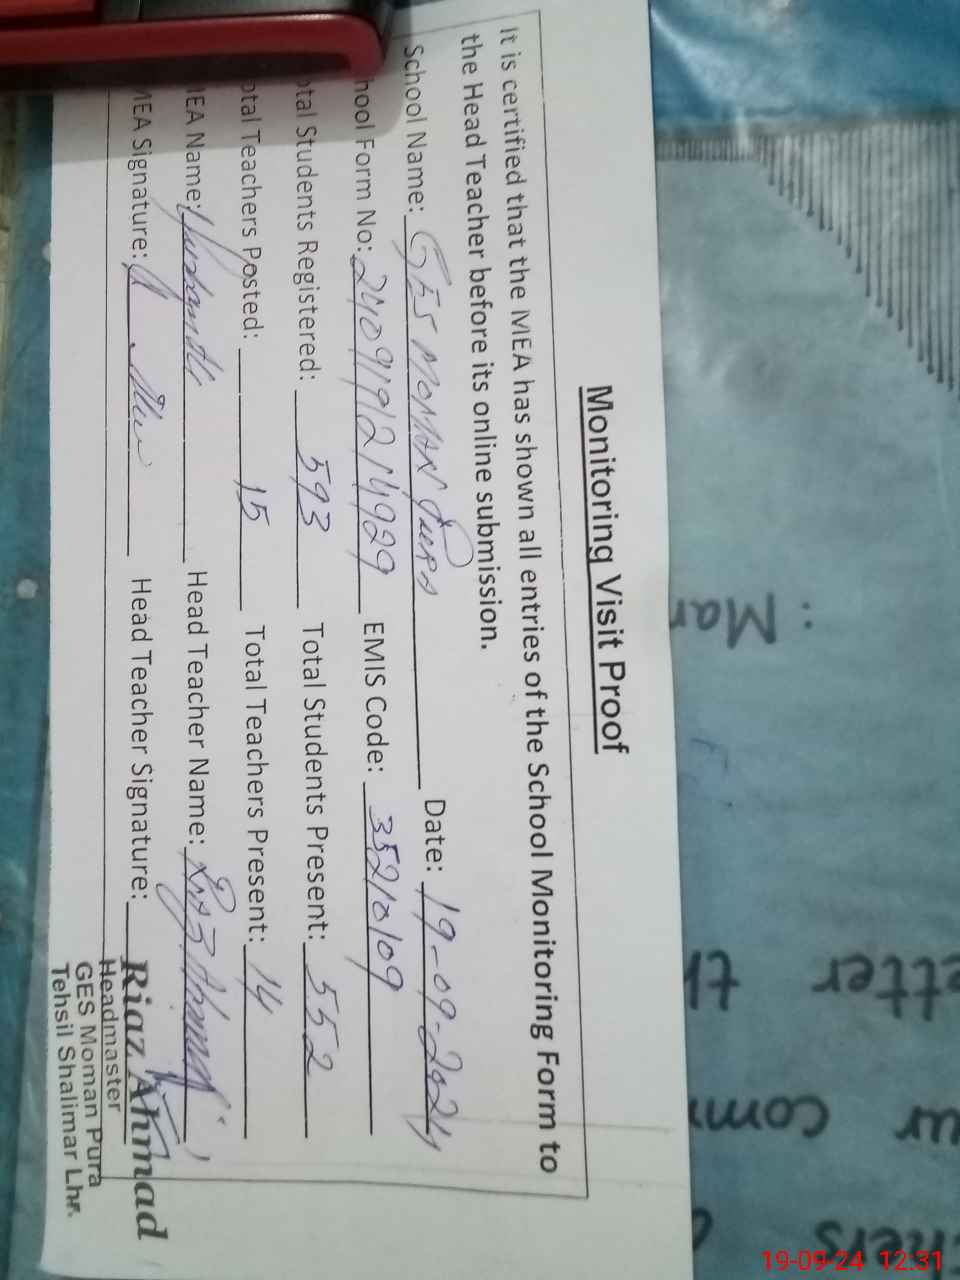 Monitoring Visit Proof
It is certified that the MEA has shown all entries of the School Monitoring Form to
the Head Teacher before its online submission.
School Name: GES MOMAN PURA Date: 19-09-2024
hool Form No: 24091912 EMIS Code: 35210109
otal Students Registered: 593 Total Students Present: 552
otal Teachers Posted: 15 Total Teachers Present: 14
MEA Name: Head Teacher Name: Riaz Ahmad
MEA Signature: Head Teacher Signature:
Riaz Ahmad
Headmaster
GES Moman Pura
Tehsil Shalimar Lhr.
: Mar
etter th
ur com
hers
19-09-24 12:31